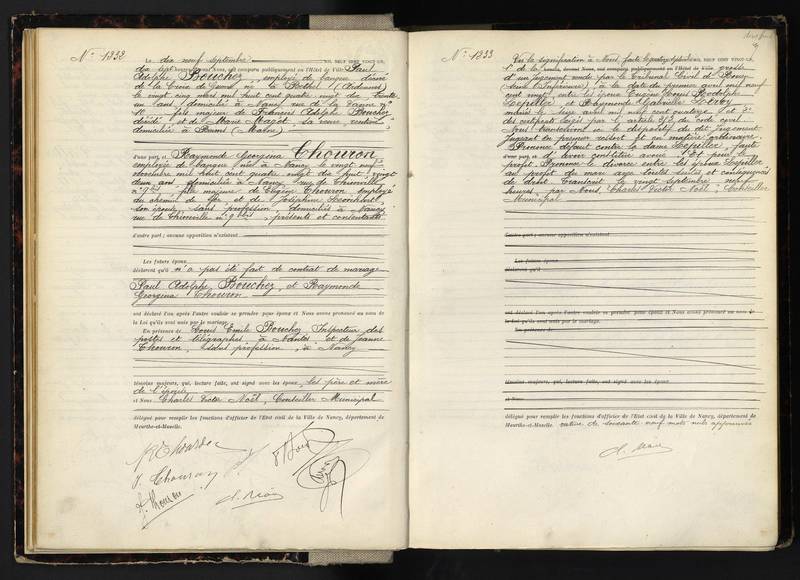 N° 1332
Le dix neuf septembre MIL NEUF CENT VINGT UN,
dix sept heures, devant Nous, ont comparu publiquement en l'Hôtel de Ville: Paul
Adolphe Bouchez, employé de banque, décoré
de la Croix de guerre né à Rethel (Ardennes)
le vingt cinq mars mil huit cent quatre vingt dix, trente
un ans, domicilié à Nancy, rue de la n°
fils majeur de François Adolphe Bouchez
décédé, et de Marie Magot sa veuve, rentière
domiciliée à Reims (Marne)
d'une part, et Raymonde Georgina Thouron,
employée de banque, née à Nancy le vingt neuf
novembre mil huit cent quatre vingt dix huit, vingt
deux ans, domiciliée à Nancy, rue de Thionville
n° 9 bis, fille majeure de Eugène Thouron employé
au chemin de fer et de Joséphine
son épouse, sans profession, domiciliés à Nancy
rue de Thionville n° 9 bis, présents et consentants
d'autre part; aucune opposition n'existant
Les futurs époux
déclarent qu'il n'a pas été fait de contrat de mariage
Paul Adolphe Bouchez et Raymonde
Georgina Thouron
ont déclaré l'un après l'autre vouloir se prendre pour époux et Nous avons prononcé au nom de
la Loi qu'ils sont unis par le mariage.
En présence de: Louis Emile Bouchez, Inspecteur des
postes et télégraphes, à Nantes et de Jeanne
Thouron, sans profession, à Nancy
témoins majeurs, qui, lecture faite, ont signé avec les époux, les père et mère
de l'épouse
et Nous Charles Victor Noël, Conseiller Municipal
délégué pour remplir les fonctions d'officier de l'Etat civil de la Ville de Nancy, département de
Meurthe-et-Moselle.
J. Thouron
N° 1333
Vu la signification à Nous faite MIL NEUF CENT VINGT UN,
de la grosse
d'un jugement rendu par le Tribunal Civil de Rouen
(Seine Inférieure), à la date du premier avril mil neuf
cent vingt, entre les époux Eugène Louis Rodolphe
Lepeller et Raymonde Gabrielle
mariés le avril mil neuf cent quatorze, et 3°
des certificats exigés par l'article 252 du code civil
Nous transcrivons ici le dispositif du dit jugement
Jugeant en premier ressort et en matière ordinaire
Donne défaut contre la dame Lepeller, faute
d'une part, et d'avoir constitué avoué et pour le
profit, Prononce le divorce entre les époux Lepeller
au profit du mari avec toutes suites et conséquences
de droit. Transcrit le vingt septembre neuf
heures, par Nous, Charles Victor Noël, Conseiller
Municipal
d'autre part; aucune opposition n'existant
Les futurs époux
déclarent qu'il
ont déclaré l'un après l'autre vouloir se prendre pour époux et Nous avons prononcé au nom de
la Loi qu'ils sont unis par le mariage.
En présence de
témoins majeurs, qui, lecture faite, ont signé avec les époux
et Nous
délégué pour remplir les fonctions d'officier de l'Etat civil de la Ville de Nancy, département de
Meurthe-et-Moselle. rature de soixante neuf mots nuls approuvée